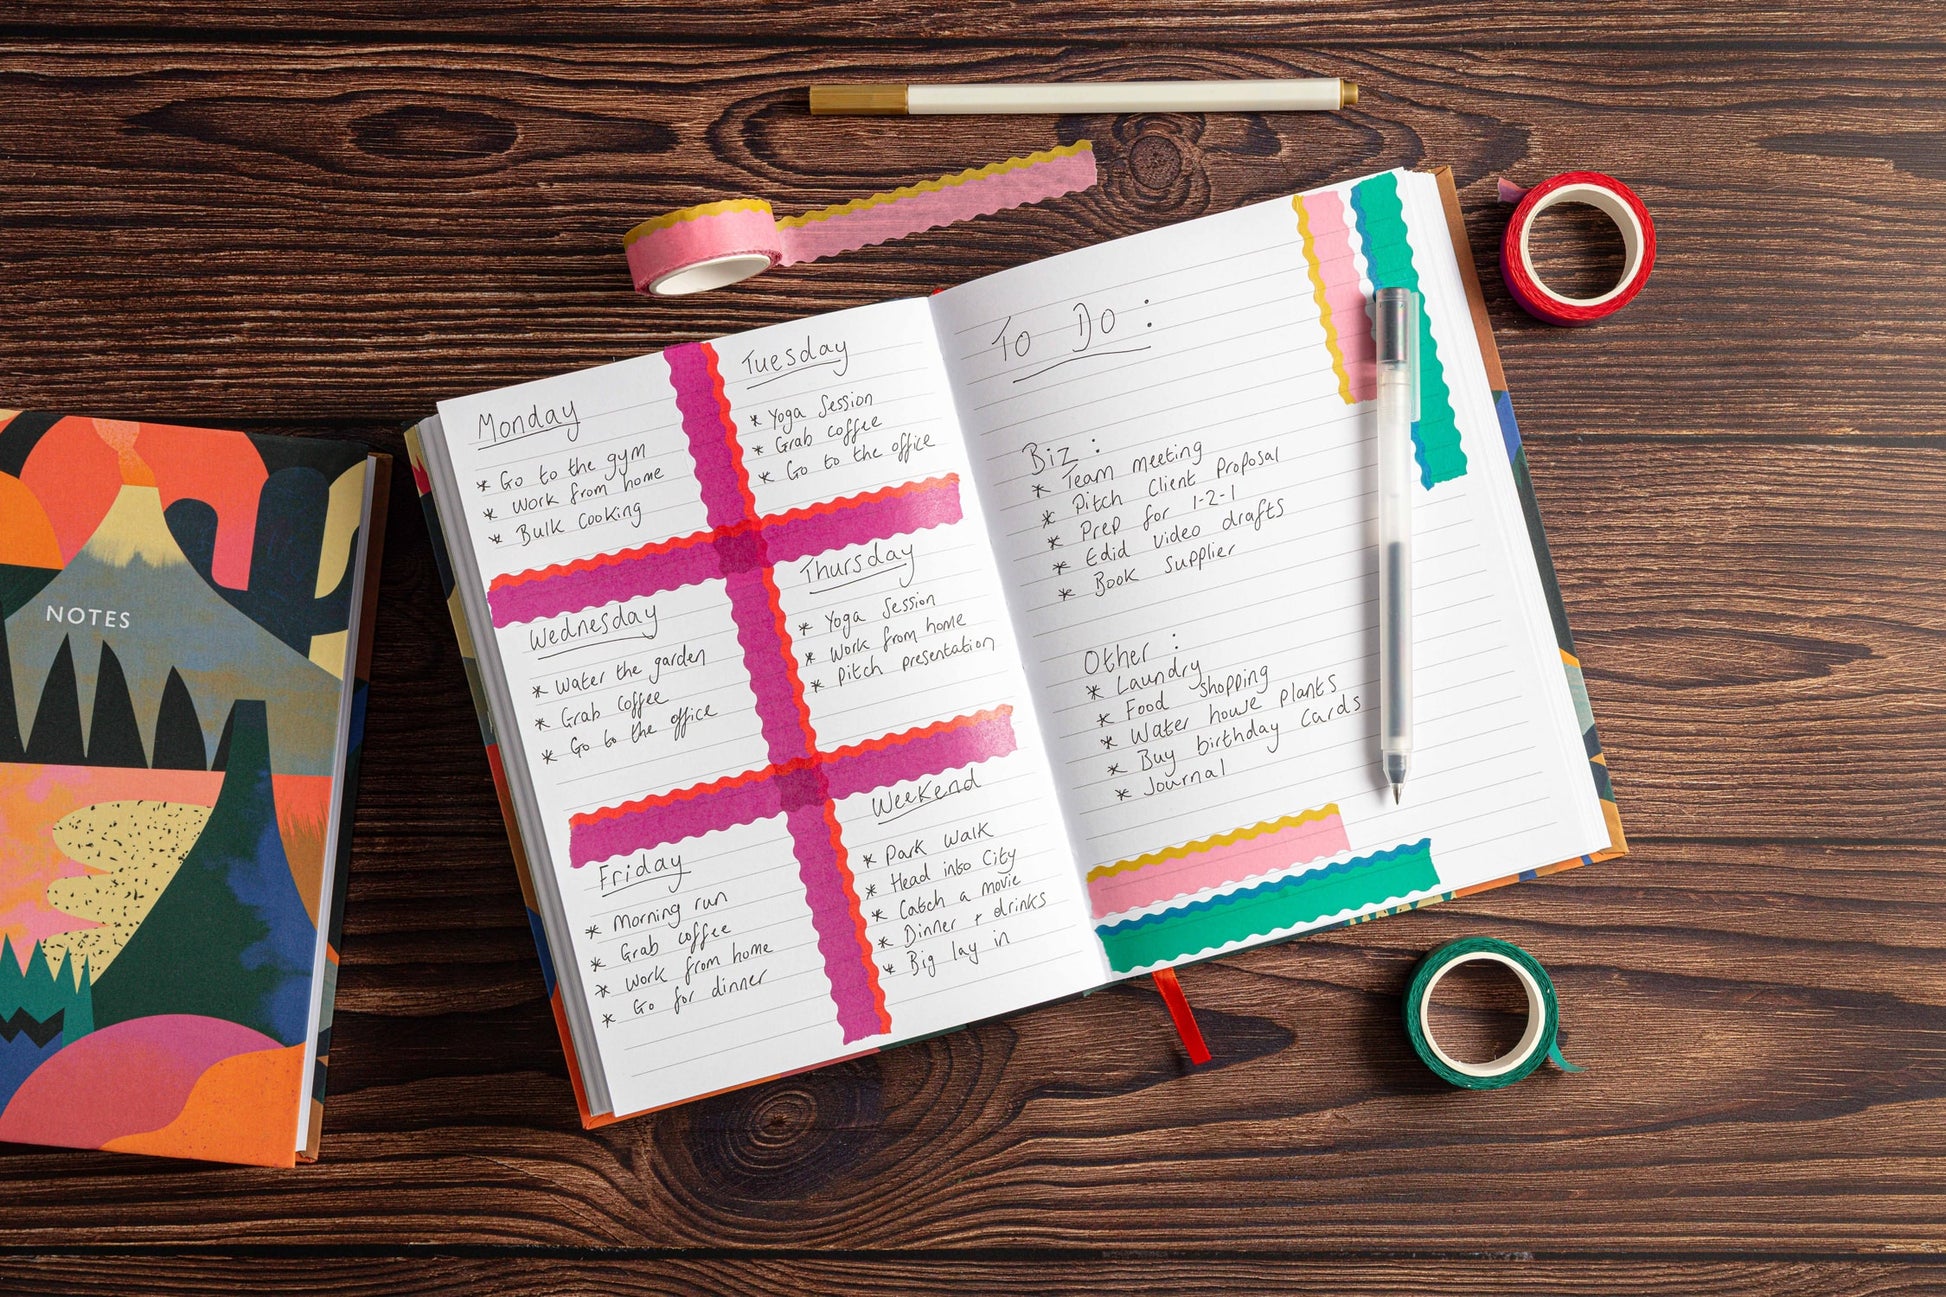 NOTES
Monday
* Go to the gym
* Work from home
* Bulk Cooking
Tuesday
* Yoga Session
* Grab coffee
* Go to the office
Wednesday
* Water the garden
* Grab coffee
* Go to the office
Thursday
* Yoga Session
* Work from home
* Pitch presentation
Friday
* Morning run
* Grab coffee
* Work from home
* Go for dinner
Weekend
* Park Walk
* Head into City
* Catch a movie
* Dinner + drinks
* Big lay in
To Do :
Biz :
* Team meeting
* Pitch Client Proposal
* Prep for 1-2-1
* Edid video drafts
* Book Supplier
Other :
* Laundry
* Food Shopping
* Water house plants
* Buy birthday Cards
* Journal